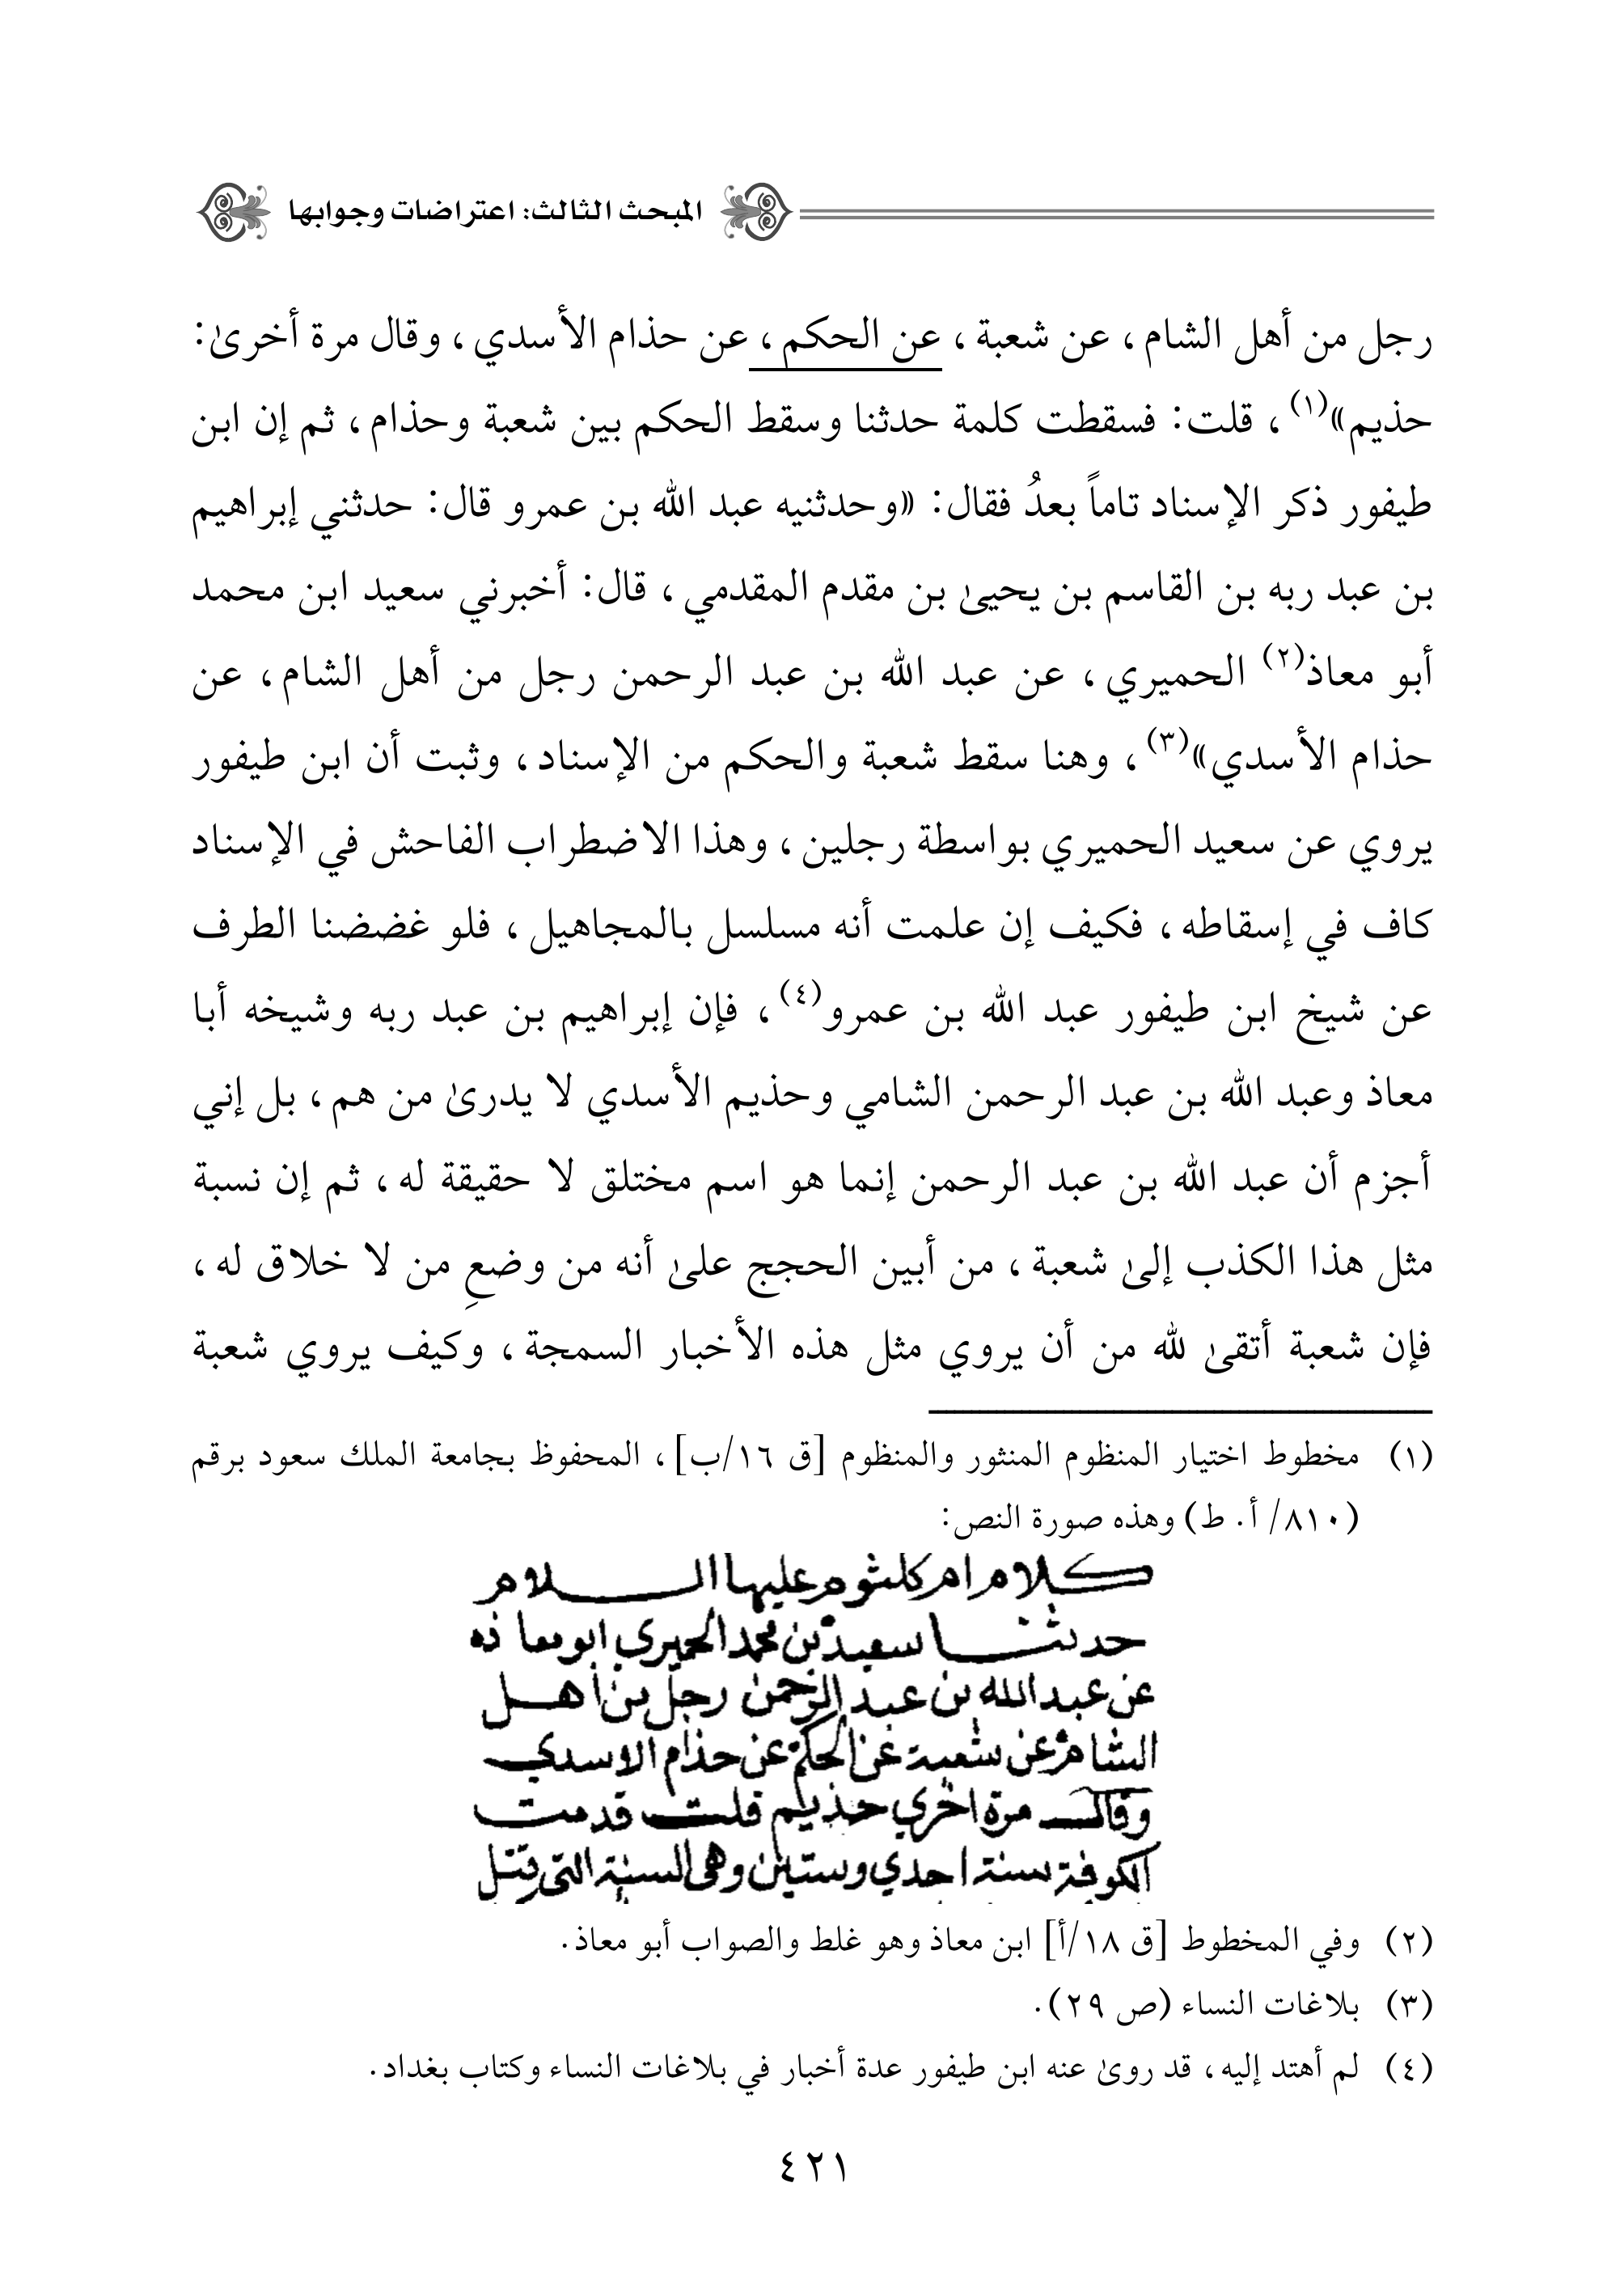 المبحث الثالث: اعتراضات وجوابها
رجل من أهل الشام، عن شعبة، عن الحكم، عن حذام الأسدي، وقال مرة أخرىٰ:
حذيم»(١)، قلت: فسقطت كلمة حدثنا وسقط الحكم بين شعبة وحذام، ثم إن ابن
طيفور ذكر الإسناد تاماً بعدُ فقال: «وحدثنيه عبد الله بن عمرو قال: حدثني إبراهيم
بن عبد ربه بن القاسم بن يحيىٰ بن مقدم المقدمي، قال: أخبرني سعيد ابن محمد
أبو معاذ(٢) الحميري، عن عبد الله بن عبد الرحمن رجل من أهل الشام، عن
حذام الأسدي»(٣)، وهنا سقط شعبة والحكم من الإسناد، وثبت أن ابن طيفور
يروي عن سعيد الحميري بواسطة رجلين، وهذا الاضطراب الفاحش في الإسناد
كاف في إسقاطه، فكيف إن علمت أنه مسلسل بالمجاهيل، فلو غضضنا الطرف
عن شيخ ابن طيفور عبد الله بن عمرو(٤)، فإن إبراهيم بن عبد ربه وشيخه أبا
معاذ وعبد الله بن عبد الرحمن الشامي وحذيم الأسدي لا يدرىٰ من هم، بل إني
أجزم أن عبد الله بن عبد الرحمن إنما هو اسم مختلق لا حقيقة له، ثم إن نسبة
مثل هذا الكذب إلىٰ شعبة، من أبين الحجج علىٰ أنه من وضعِ من لا خلاق له،
فإن شعبة أتقىٰ لله من أن يروي مثل هذه الأخبار السمجة، وكيف يروي شعبة
(١) مخطوط اختيار المنظوم المنثور والمنظوم [ق ١٦/ب]، المحفوظ بجامعة الملك سعود برقم
(٨١٠/ أ. ط) وهذه صورة النص:
كلام ام كلثوم عليها السلام
حدثنا سعيد بن محمد الحميري ابو معاذه
عن عبد الله بن عبد الرحمن رجل بن أهل
الشام عن شعبة عن الحكم عن حذام الاسدي
وقال مرة اخري حذيم قلت قدمت
الكوفة سنة احدي وستين وهي السنة التي قتل
(٢) وفي المخطوط [ق ١٨/أ] ابن معاذ وهو غلط والصواب أبو معاذ.
(٣) بلاغات النساء (ص ٢٩).
(٤) لم أهتد إليه، قد روىٰ عنه ابن طيفور عدة أخبار في بلاغات النساء وكتاب بغداد.
٤٢١